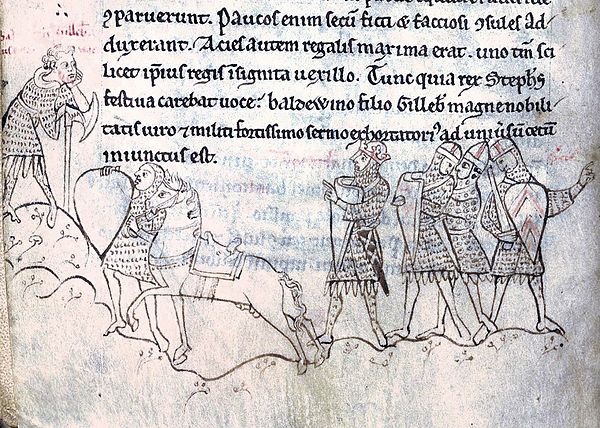 ꝯparuerunt. Paucos enim secū ficti & factiosi ꝯsules ad
duxerant. Acies autem regalis maxima erat. uno tm̄ sci
licet ip̄ius regis īsignita uexillo. Tunc quia rex Stephs̄
festiua carebat uoce: baldewino filio Gilleb̄ magne nobili
tatis uiro & militi fortissimo sermo exhortatori᷒ ad uniu̓sū cetū
iniunctus est.